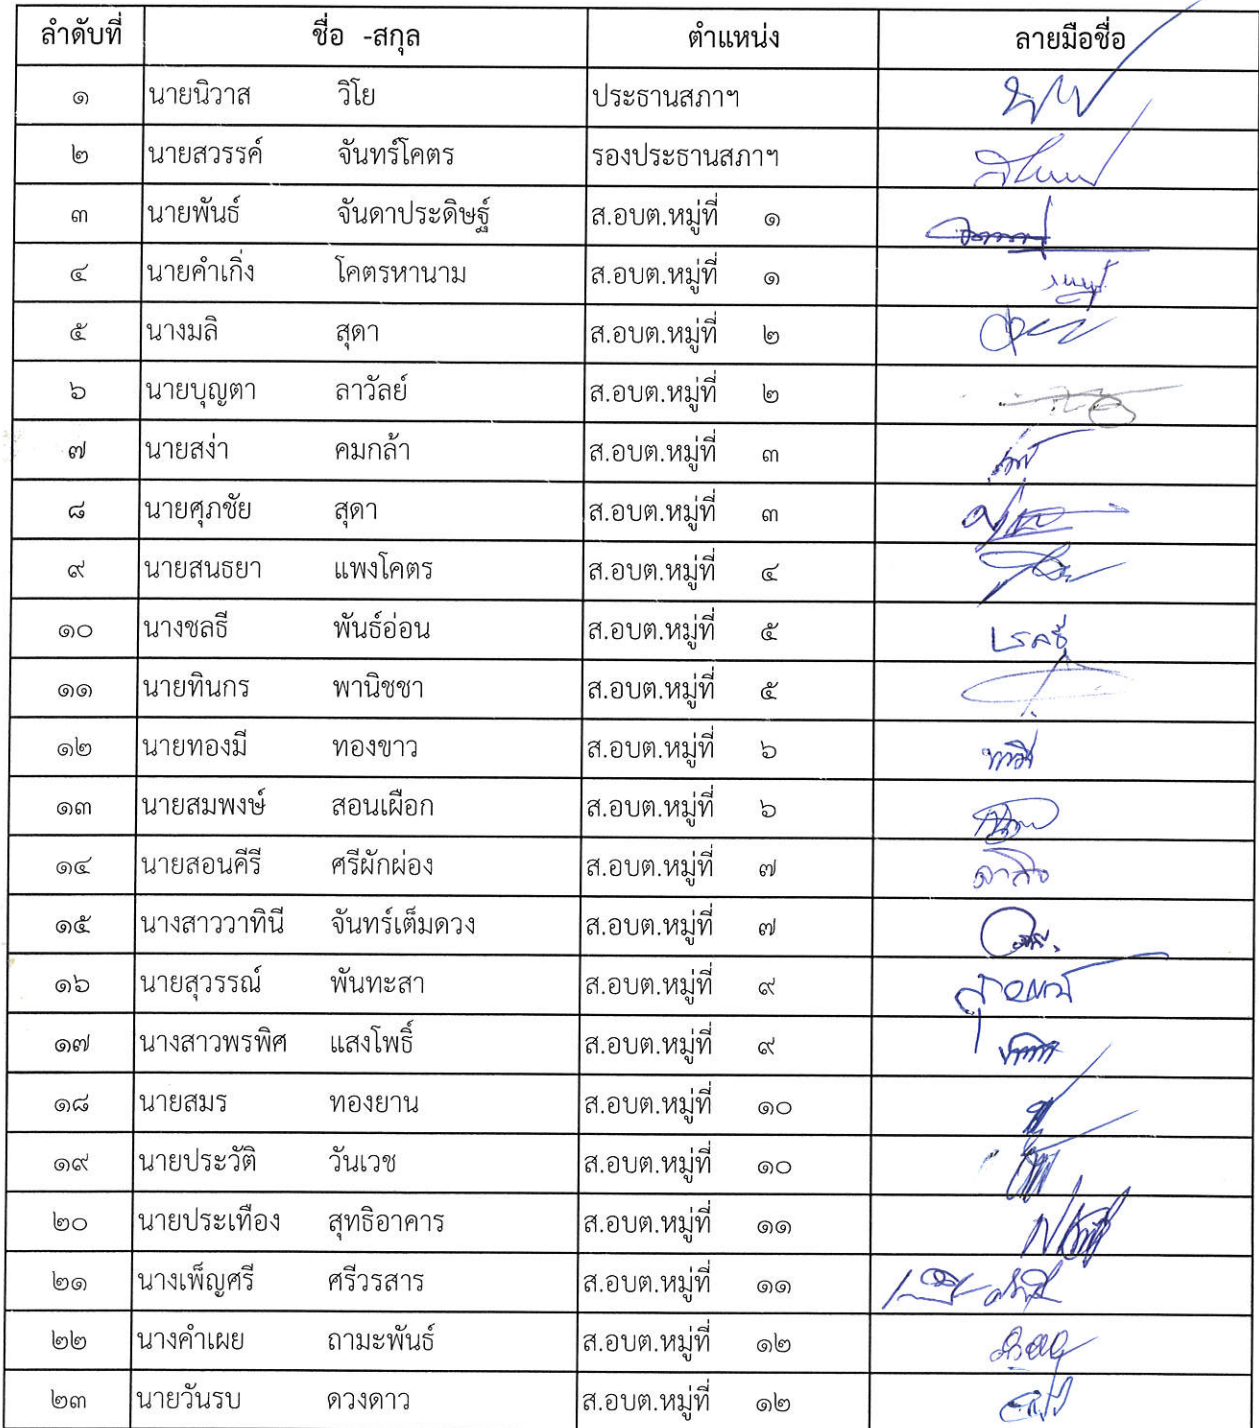 ลำดับที่ ชื่อ -สกุล ตำแหน่ง ลายมือชื่อ
๑ นายนิวาส วิโย ประธานสภาฯ
๒ นายสวรรค์ จันทร์โคตร รองประธานสภาฯ
๓ นายพันธ์ จันดาประดิษฐ์ ส.อบต.หมู่ที่ ๑
๔ นายคำเกิ่ง โคตรหานาม ส.อบต.หมู่ที่ ๑
๕ นางมลิ สุดา ส.อบต.หมู่ที่ ๒
๖ นายบุญตา ลาวัลย์ ส.อบต.หมู่ที่ ๒
๗ นายสง่า คมกล้า ส.อบต.หมู่ที่ ๓
๘ นายศุภชัย สุดา ส.อบต.หมู่ที่ ๓
๙ นายสนธยา แพงโคตร ส.อบต.หมู่ที่ ๔
๑๐ นางชลธี พันธ์อ่อน ส.อบต.หมู่ที่ ๕
๑๑ นายทินกร พานิชชา ส.อบต.หมู่ที่ ๕
๑๒ นายทองมี ทองขาว ส.อบต.หมู่ที่ ๖
๑๓ นายสมพงษ์ สอนเผือก ส.อบต.หมู่ที่ ๖
๑๔ นายสอนคีรี ศรีผักผ่อง ส.อบต.หมู่ที่ ๗
๑๕ นางสาววาทินี จันทร์เต็มดวง ส.อบต.หมู่ที่ ๗
๑๖ นายสุวรรณ์ พันทะสา ส.อบต.หมู่ที่ ๙
๑๗ นางสาวพรพิศ แสงโพธิ์ ส.อบต.หมู่ที่ ๙
๑๘ นายสมร ทองยาน ส.อบต.หมู่ที่ ๑๐
๑๙ นายประวัติ วันเวช ส.อบต.หมู่ที่ ๑๐
๒๐ นายประเทือง สุทธิอาคาร ส.อบต.หมู่ที่ ๑๑
๒๑ นางเพ็ญศรี ศรีวรสาร ส.อบต.หมู่ที่ ๑๑
๒๒ นางคำเผย ถามะพันธ์ ส.อบต.หมู่ที่ ๑๒
๒๓ นายวันรบ ดวงดาว ส.อบต.หมู่ที่ ๑๒